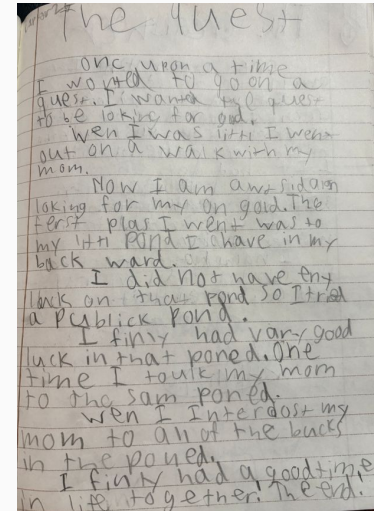 The quest
onc upon a time
I wonted to go on a
quest. I wanted the quest
to be loking for god.
Wen I was littl I went
out on a walk with my
mom.
Now I am awtsidain
loking for my on gold. The
ferst plas I went was to
my littl Pond I have in my
back ward.
I did not have eny
luck on that pond so I tried
a Publick pond.
I finly had vary good
luck in that poned. One
time I toulk my mom
to the sam poned.
Wen I Interdost my
mom to all of the bucks
in the poned.
I finly had a good time
in life together! The end.